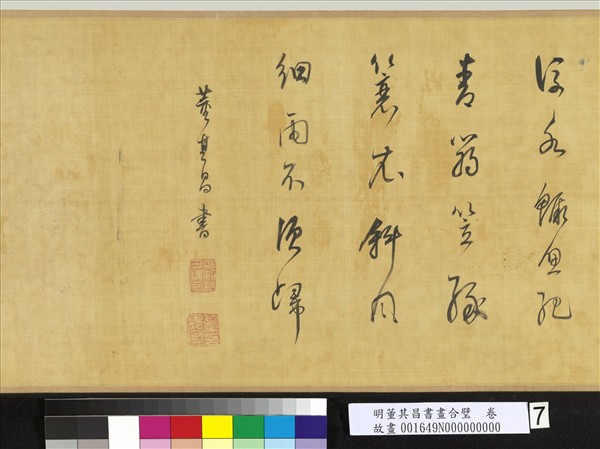 流水鱖魚肥
青篛笠綠
簑衣斜風
細雨不須歸
董其昌書
明董其昌書畫合璧 卷
故畫 001649N000000000
7